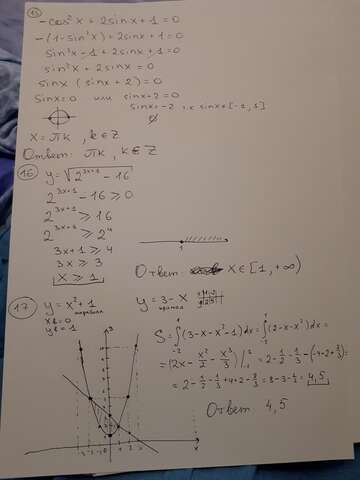 15
-cos²x + 2sinx + 1 = 0
-(1 - sin²x) + 2sinx + 1 = 0
sin²x - 1 + 2sinx + 1 = 0
sin²x + 2sinx = 0
sinx (sinx + 2) = 0
sinx = 0 или sinx + 2 = 0
sinx = -2 т.к sinx ∈ [-1, 1]
∅
x = πk, k ∈ Z
Ответ: πk, k ∈ Z
16 y = √(2^(3x+1) - 16)
2^(3x+1) - 16 ≥ 0
2^(3x+1) ≥ 16
2^(3x+1) ≥ 2⁴
3x+1 ≥ 4
3x ≥ 3
x ≥ 1
1
Ответ: x ∈ [1, +∞)
17 y = x² + 1 y = 3 - x
парабола прямая
xв = 0
yв = 1
S = ∫₋₂¹ (3 - x - x² - 1)dx = ∫₋₂¹ (2 - x - x²)dx =
= (2x - x²/2 - x³/3) |₋₂¹ = 2 - 1/2 - 1/3 - (-4 - 2 + 8/3) =
= 2 - 1/2 - 1/3 + 4 + 2 - 8/3 = 8 - 3 - 1/2 = 4,5
Ответ 4,5
x